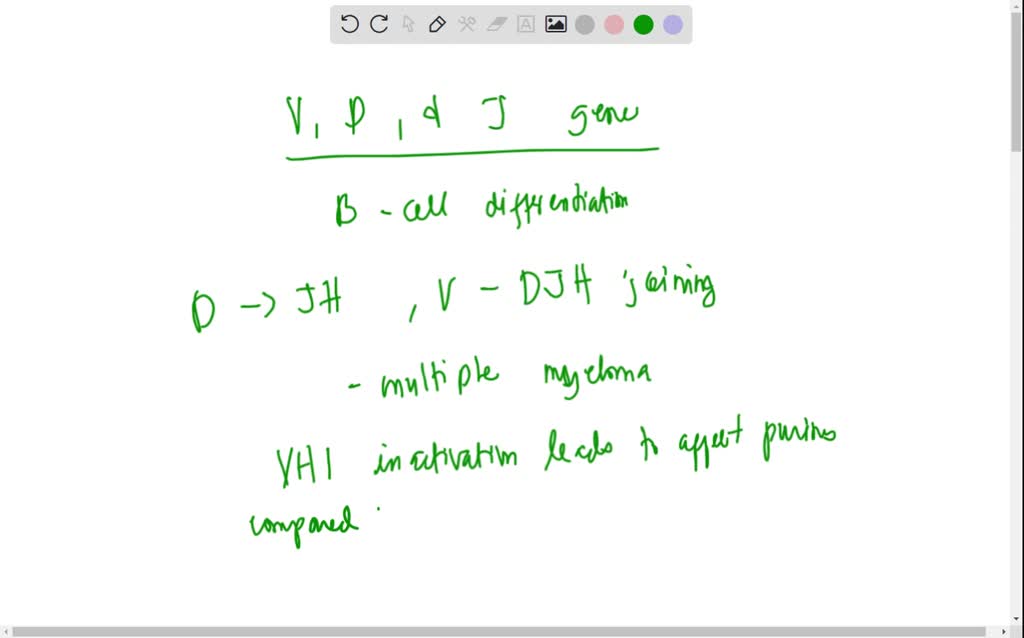 V, D, & J gene
B - cell differentiation
D -> JH , V - DJH joining
- multiple myeloma
VH1 inactivation leads to affect purins
compared